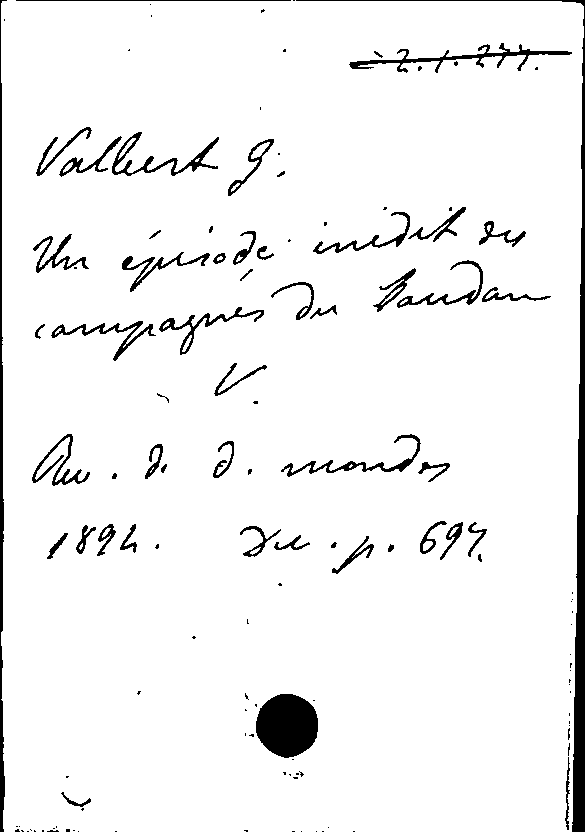 2.1.277.
Valbert G.
Un épisode inédit des
campagnes du Soudan
V.
Rev. d. d. mondes
1894. Déc. p. 697.